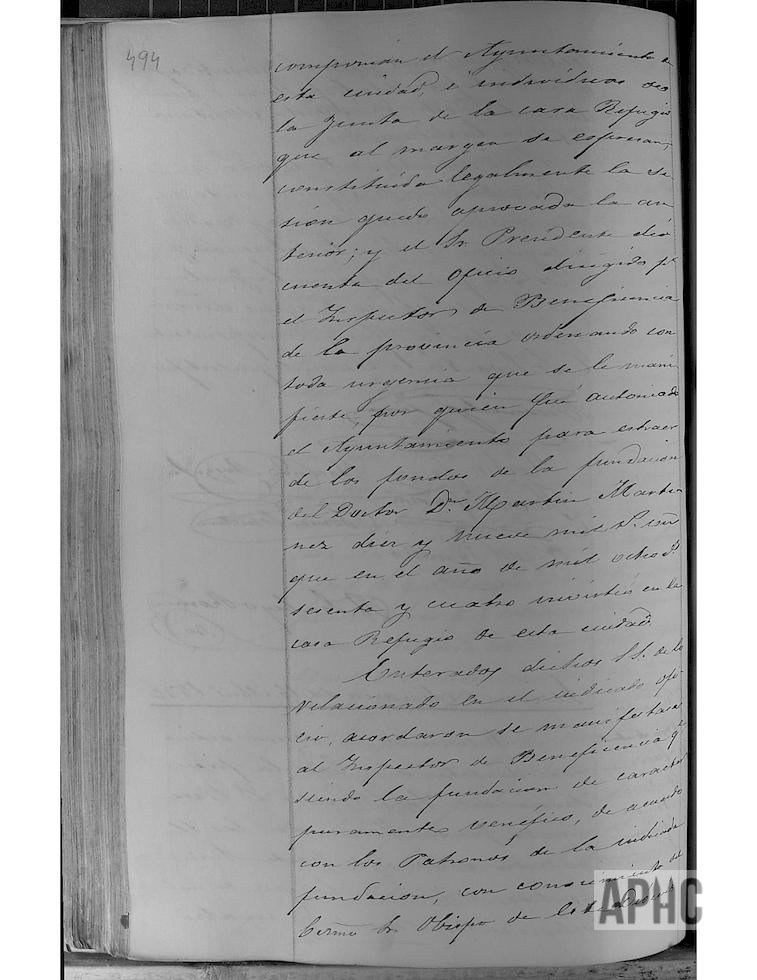 494
componian el Ayuntamiento de
esta ciudad, é individuos de
la Junta de la casa Refugio
que al margen se espresan,
constituida legalmente la se
sion quedo aprovada la an
terior; y el Sr. Presidente dió
cuenta del oficio dirigido pr
el Inspector de Beneficencia
de la provincia ordenando con
toda urgencia que se le mani
fieste, por quien fué autorizado
el Ayuntamiento para estraer
de los fondos de la fundacion
del Doctor Dn. Martin Marti
nez diez y nueve mil rs. vn
que en el año de mil ochos.
sesenta y cuatro invirtió en la
casa Refugio de esta ciudad.
Enterados dichos SS. de lo
relacionado en el indicado ofi
cio, acordaron se manifestase
al Inspector de Beneficencia qe
siendo la fundacion de caracter
puramente venéfico, de acuerdo
con los Patronos de la indicada
fundacion, con conocimiento del
Sr. Obispo de esta
APHC